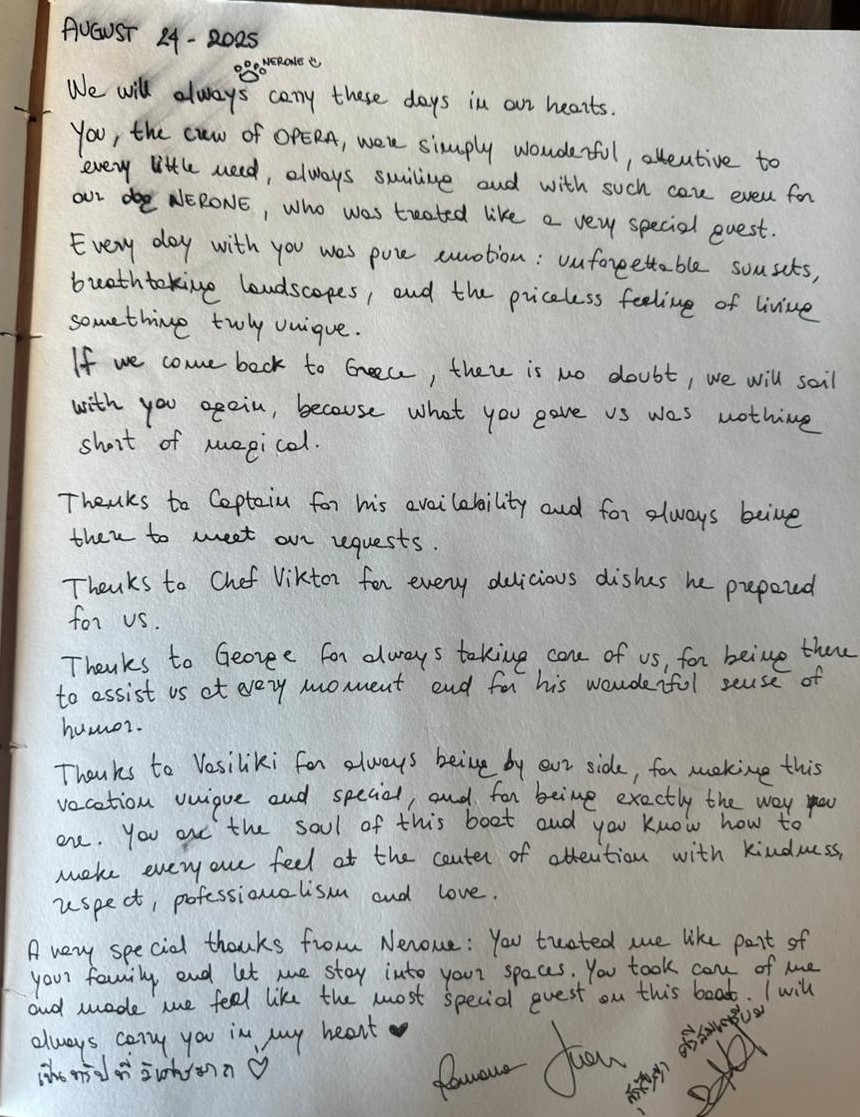 AUGUST 24 - 2025
NERONE
We will always carry these days in our hearts.
You, the crew of OPERA, were simply wonderful, attentive to
every little need, always smiling and with such care even for
our dog NERONE, who was treated like a very special guest.
Every day with you was pure emotion: unforgettable sunsets,
breathtaking landscapes, and the priceless feeling of living
something truly unique.
If we come back to Greece, there is no doubt, we will sail
with you again, because what you gave us was nothing
short of magical.
Thanks to Captain for his availability and for always being
there to meet our requests.
Thanks to Chef Viktor for every delicious dishes he prepared
for us.
Thanks to George for always taking care of us, for being there
to assist us at every moment and for his wonderful sense of
humor.
Thanks to Vasiliki for always being by our side, for making this
vacation unique and special, and for being exactly the way you
are. You are the soul of this boat and you know how to
make everyone feel at the center of attention with kindness,
respect, pofessionalism and love.
A very special thanks from Nerone: You treated me like part of
your family and let me stay into your spaces. You took care of me
and made me feel like the most special guest on this boat. I will
always carry you in my heart ♥
เป็นทริปที่วิเศษมาก ♡